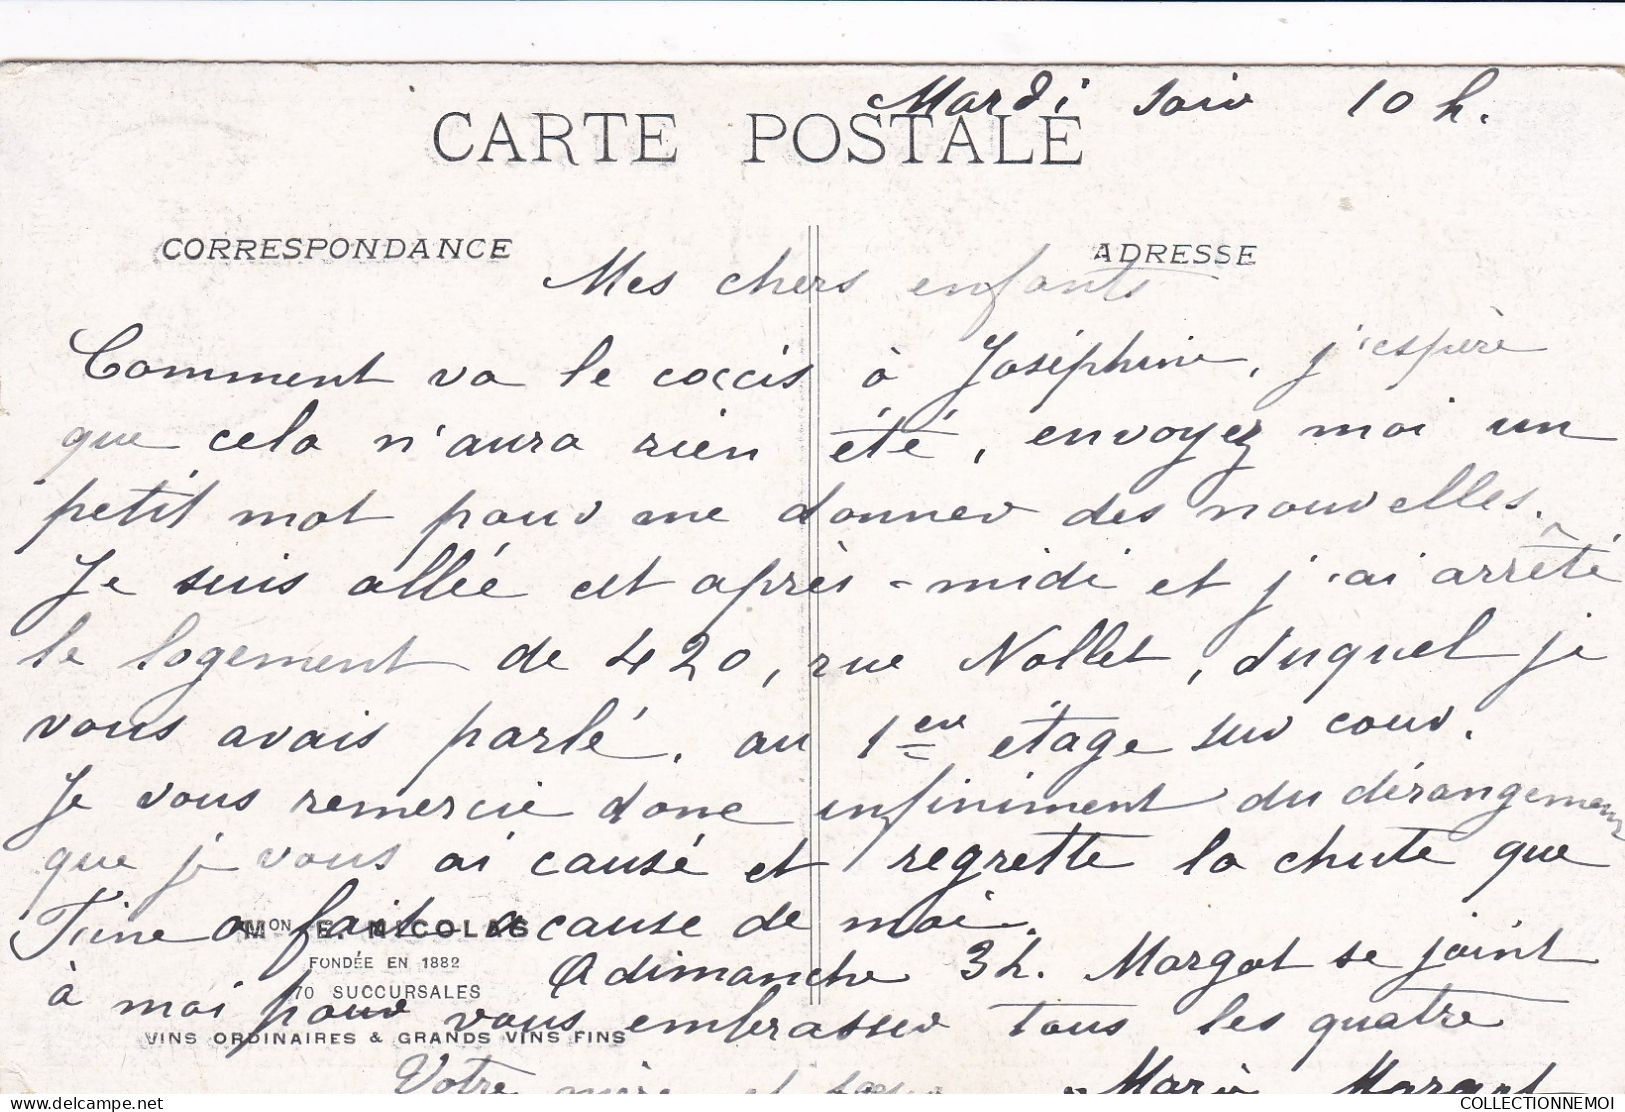 Mardi soir 10 h.
CARTE POSTALE
CORRESPONDANCE
ADRESSE
Mes chers enfants
Comment va le coccis à Joséphine, j'espère
que cela n'aura rien été, envoyez moi un
petit mot pour me donner des nouvelles.
Je suis allée cet après-midi et j'ai arrêté
le logement de 420, rue Nollet, duquel je
vous avais parlé, au 1er étage sur cour.
Je vous remercie donc infiniment du dérangement
que je vous ai causé et regrette la chute que
Fine a fait a cause de moi.
MON E. NICOLAS
FONDÉE EN 1882
70 SUCCURSALES
VINS ORDINAIRES & GRANDS VINS FINS
A dimanche 3 h. Margot se joint
à moi pour vous embrasser tous les quatre
Votre mère et sœur Marie Margot
delcampe.net
COLLECTIONNEMOI